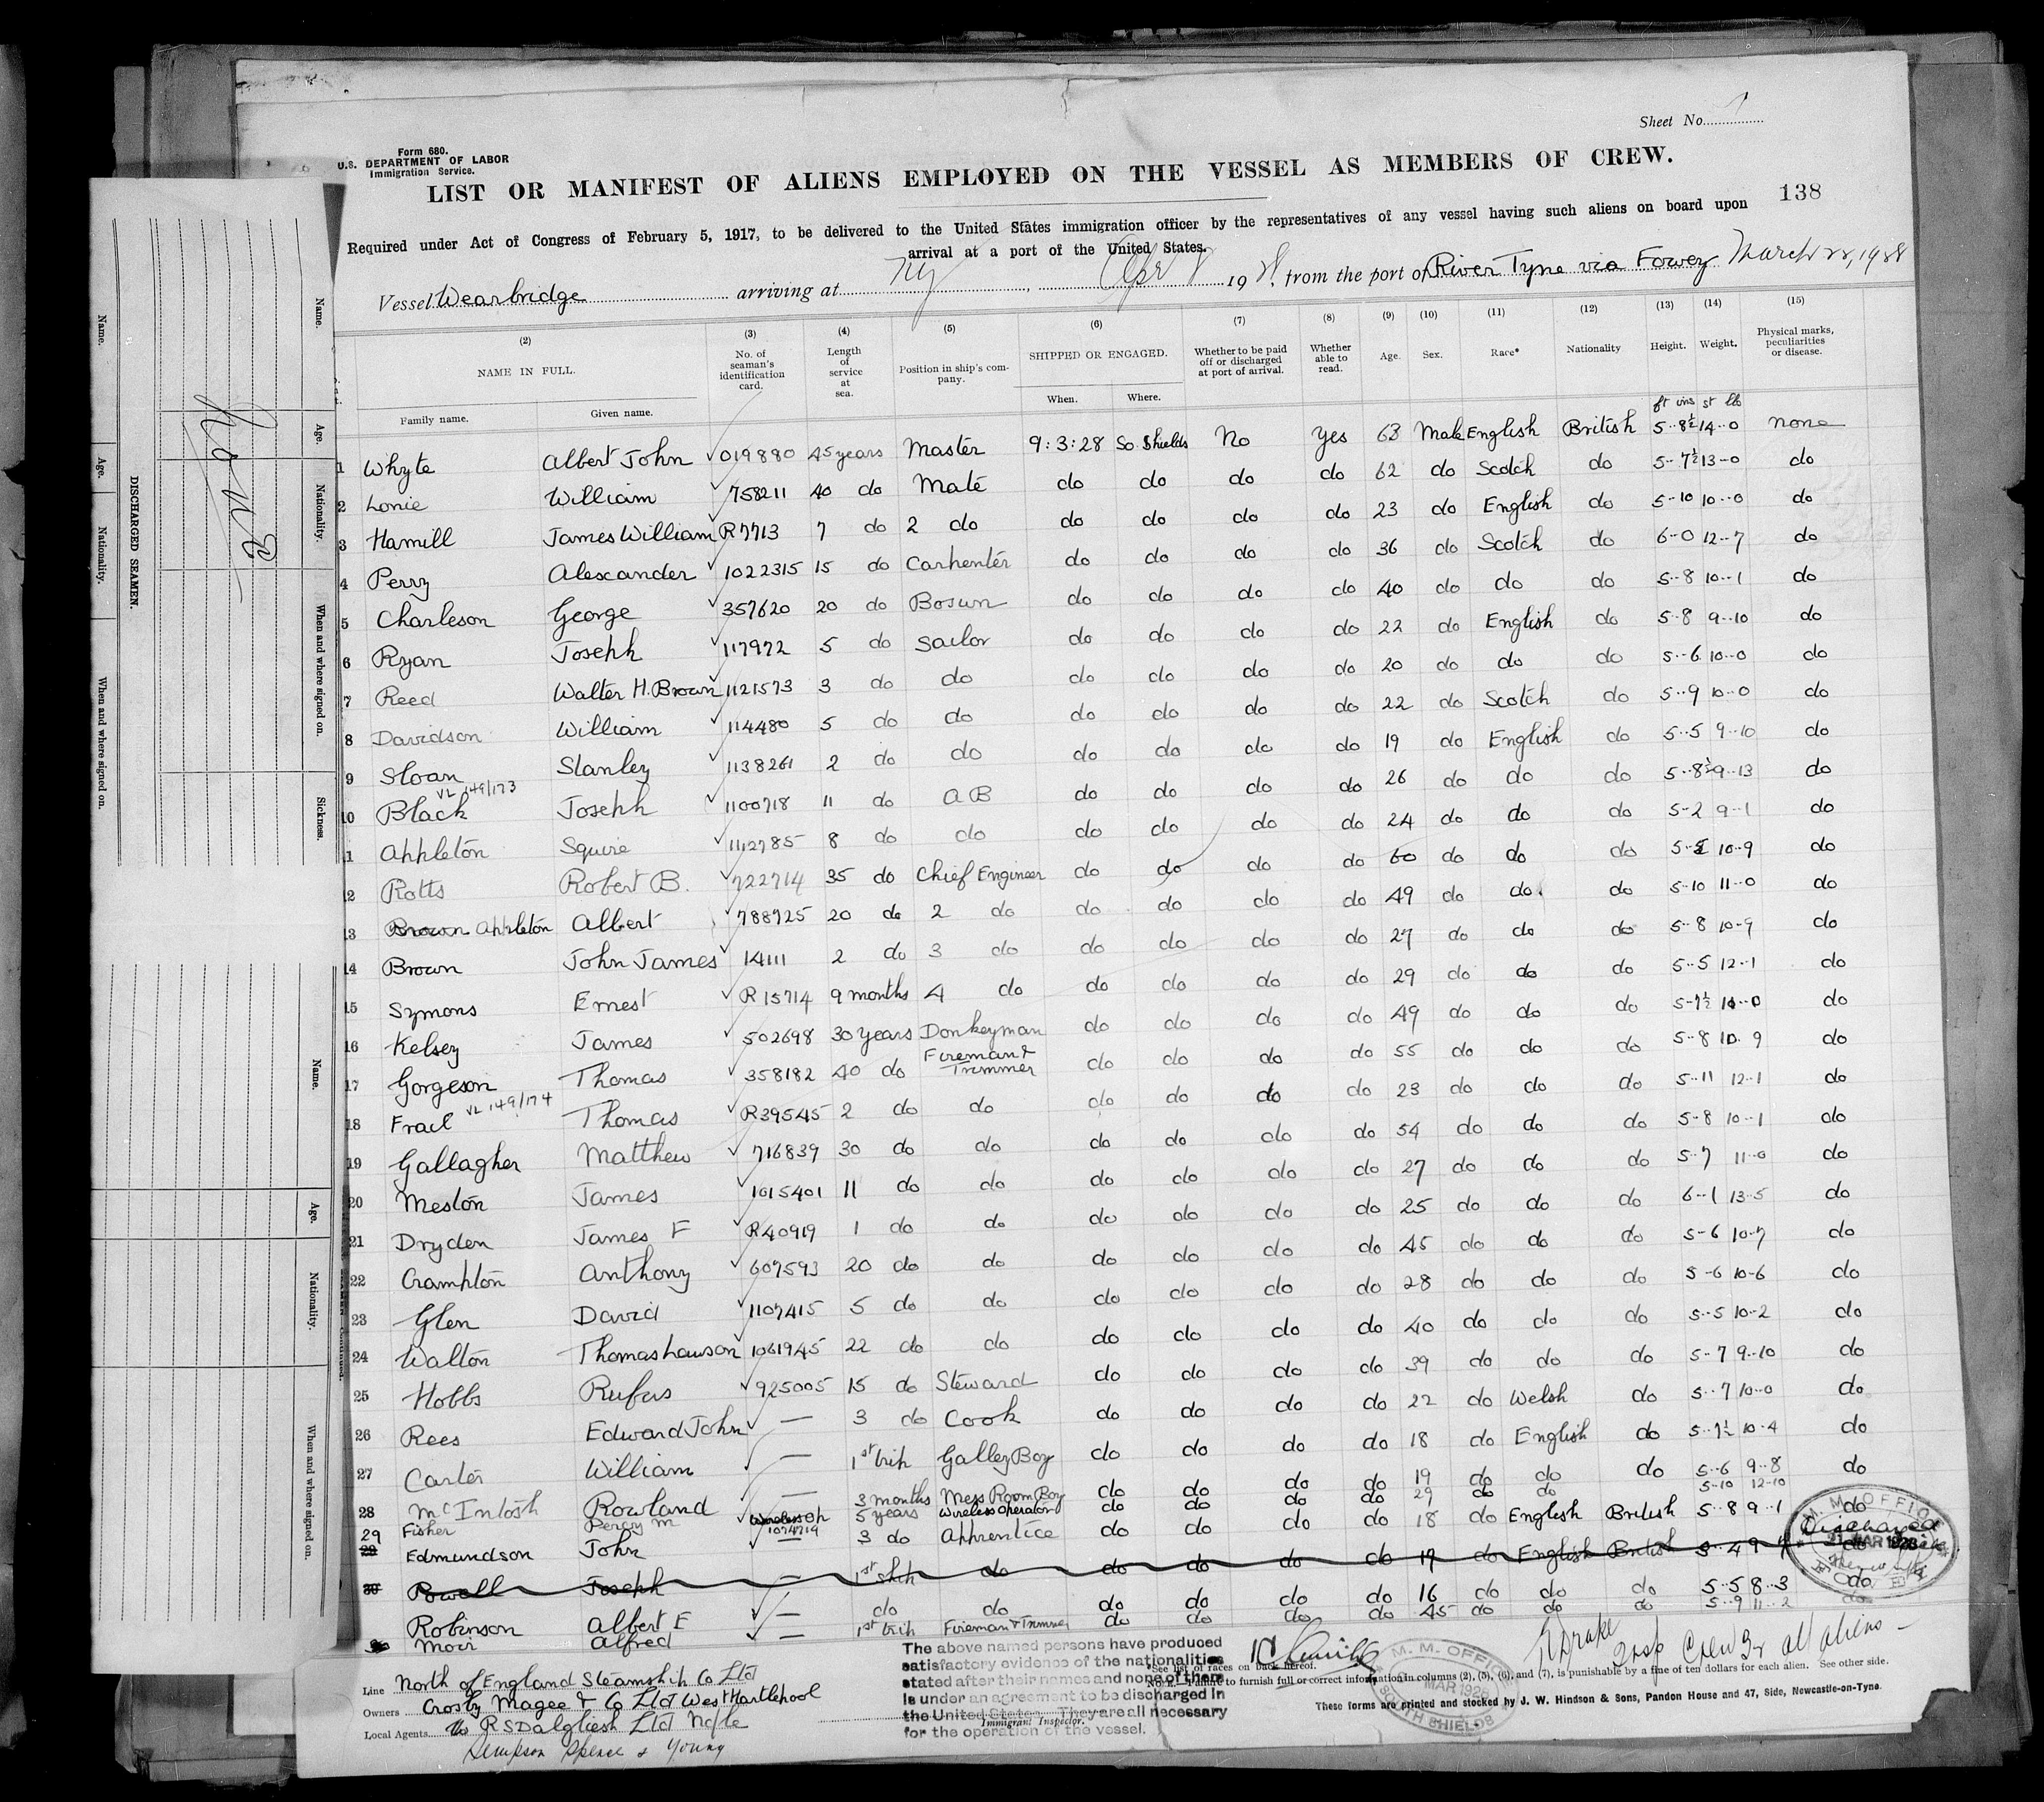 Sheet No. 1
Form 680.
U.S. DEPARTMENT OF LABOR
Immigration Service.
LIST OR MANIFEST OF ALIENS EMPLOYED ON THE VESSEL AS MEMBERS OF CREW.
138
Required under Act of Congress of February 5, 1917, to be delivered to the United States immigration officer by the representatives of any vessel having such aliens on board upon
arrival at a port of the United States.
Vessel Wearbridge arriving at NY, Apr 1928, from the port of River Tyne via Fowey March 22, 1928
(2) (3) (4) (5) (6) (7) (8) (9) (10) (11) (12) (13) (14) (15)
NAME IN FULL. No. of seaman's identification card. Length of service at sea. Position in ship's company. SHIPPED OR ENGAGED. Whether to be paid off or discharged at port of arrival. Whether able to read. Age. Sex. Race* Nationality Height. Weight. Physical marks, peculiarities or disease.
Family name. Given name. When. Where.
ft ins st lb
1 Whyte Albert John 019880 45 years Master 9:3:28 So. Shields No Yes 63 Male English British 5-8½ 14-0 none
2 Lonie William 758211 40 do Mate do do do do 62 do Scotch do 5-7½ 13-0 do
3 Hamill James William R7713 7 do 2 do do do do do 23 do English do 5-10 10-0 do
4 Perry Alexander 1022315 15 do Carpenter do do do do 36 do Scotch do 6-0 12-7 do
5 Charleson George 357620 20 do Bosun do do do do 40 do do do 5-8 10-1 do
6 Ryan Joseph 117972 5 do Sailor do do do do 22 do English do 5-8 9-10 do
7 Reed Walter H. Brown 1121573 3 do do do do do do 20 do do do 5-6 10-0 do
8 Davidson William 114480 5 do do do do do do 22 do Scotch do 5-9 10-0 do
9 Sloan Stanley 1138261 2 do do do do do do 19 do English do 5-5 9-10 do
VL 149/173
10 Black Joseph 1100718 11 do AB do do do do 26 do do do 5-8½ 9-13 do
11 Appleton Squire 1112785 8 do do do do do do 24 do do do 5-2 9-1 do
12 Potts Robert B. 722714 35 do Chief Engineer do do do do 60 do do do 5-5 10-9 do
13 Brown Appleton Albert 788725 20 do 2 do do do do do 49 do do do 5-10 11-0 do
14 Brown John James 14111 2 do 3 do do do do do 27 do do do 5-8 10-9 do
15 Symons Ernest R15714 9 months 4 do do do do do 29 do do do 5-5 12-1 do
16 Kelsey James 502698 30 years Donkeyman do do do do 49 do do do 5-7½ 10-0 do
17 Gorgeson Thomas 358182 40 do Fireman & Trimmer do do do do 55 do do do 5-8 10-9 do
VL 149/174
18 Frail Thomas R39545 2 do do do do do do 23 do do do 5-11 12-1 do
19 Gallagher Matthew 716839 30 do do do do do do 54 do do do 5-8 10-1 do
20 Meston James 1015401 11 do do do do do do 27 do do do 5-7 11-0 do
21 Dryden James F R40919 1 do do do do do do 25 do do do 6-1 13-5 do
22 Crampton Anthony 607593 20 do do do do do do 45 do do do 5-6 10-7 do
23 Glen David 1107415 5 do do do do do do 28 do do do 5-6 10-6 do
24 Walton Thomas Lawson 1061945 22 do do do do do do 40 do do do 5-5 10-2 do
25 Hobbs Rufus 925005 15 do Steward do do do do 39 do do do 5-7 9-10 do
26 Rees Edward John — 3 do Cook do do do do 22 do Welsh do 5-7 10-0 do
27 Carter William — 1st trip Galley Boy do do do do 18 do English do 5-7½ 10-4 do
28 McIntosh Rowland — 3 months Mess Room Boy do do do do 19 do do do 5-6 9-8 do
29 Fisher Percy M 1074719 5 years Wireless Operator do do do do 29 do do 5-10 12-10 do
29 Edmundson John — 3 do Apprentice do do do do 18 do English British 5-8 9-1
30 Powell Joseph — 1st ship do do do do do 17 do English British 5-4 9-4 do
Robinson Albert E — do do do do do do 16 do do do 5-5 8-3 do
Moir Alfred — 1st trip Fireman & Trimmer do do do do 45 do do do 5-9 11-2 do
Discharged
M. M. OFFICE
21 MAR 1928
FOWEY
Line North of England Steamship Co Ltd
Owners Crosby Magee & Co Ltd West Hartlepool
Local Agents R S Dalgliesh Ltd N/cle
Simpson Spence & Young
The above named persons have produced
satisfactory evidence of the nationalities
stated after their names and none of them
is under an agreement to be discharged in
the United States. They are all necessary
for the operation of the vessel.
Immigrant Inspector.
*See list of races on back hereof.
NOTE.—Failure to furnish full or correct information in columns (2), (5), (6), and (7), is punishable by a fine of ten dollars for each alien. See other side.
These forms are printed and stocked by J. W. Hindson & Sons, Pandon House and 47, Side, Newcastle-on-Tyne.
M. M. OFFICE
MAR 1928
SOUTH SHIELDS
Drake
Insp Crew 32 all aliens
DISCHARGED SEAMEN.
Name. Age. Nationality. When and where signed on.
Name. Age. Nationality. When and where signed on. Sickness.
None
Name. Age. Nationality. When and where signed on.